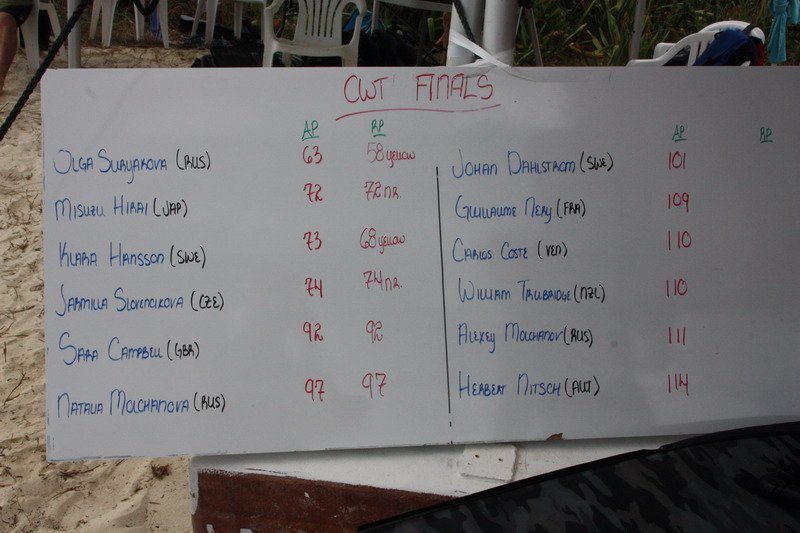 CWT FINALS
AP RP
OLGA SURYAKOVA (RUS) 63 58 yellow
MISUZU HIRAI (JAP) 72 72 NR.
KLARA HANSSON (SWE) 73 68 yellow
JARMILLA SLOVENCIKOVA (CZE) 74 74 NR.
SARA CAMPBELL (GBR) 92 92
NATALIA MOLCHANOVA (RUS) 97 97
AP RP
JOHAN DAHLSTROM (SWE) 101
GUILLAUME NERY (FRA) 109
CARLOS COSTE (VEN) 110
WILLIAM TRUBRIDGE (NZL) 110
ALEXEY MOLCHANOV (RUS) 111
HERBERT NITSCH (AUT) 114